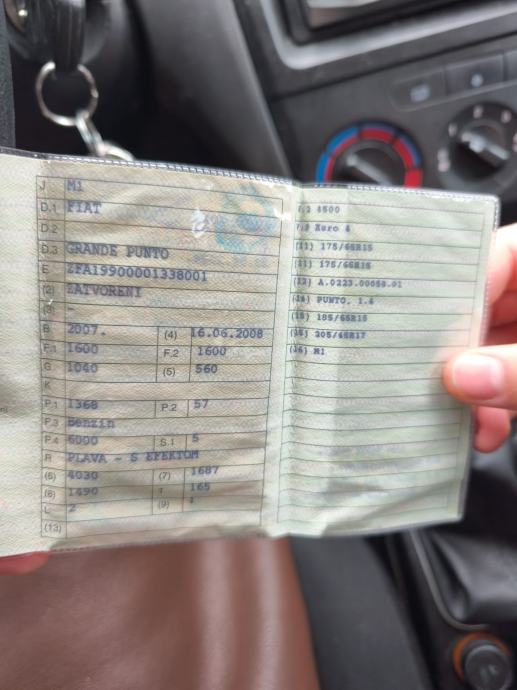 J M1
D.1 FIAT
D.2
D.3 GRANDE PUNTO
E ZFA19900001338001
(2) ZATVORENI
(3) -
B 2007. (4) 16.06.2008
F.1 1600 F.2 1600
G 1040 (5) 560
K
P.1 1368 P.2 57
P.3 Benzin
P.4 6000 S.1 5
R PLAVA - S EFEKTOM
(6) 4030 (7) 1687
(8) 1490 T 165
L 2 (9)
(13)
4500
Euro 4
(11) 175/65R15
(11) 175/65R15
(12) A.0223.00058.01
(14) PUNTO, 1.4
(15) 185/65R15
(15) 205/45R17
(16) M1